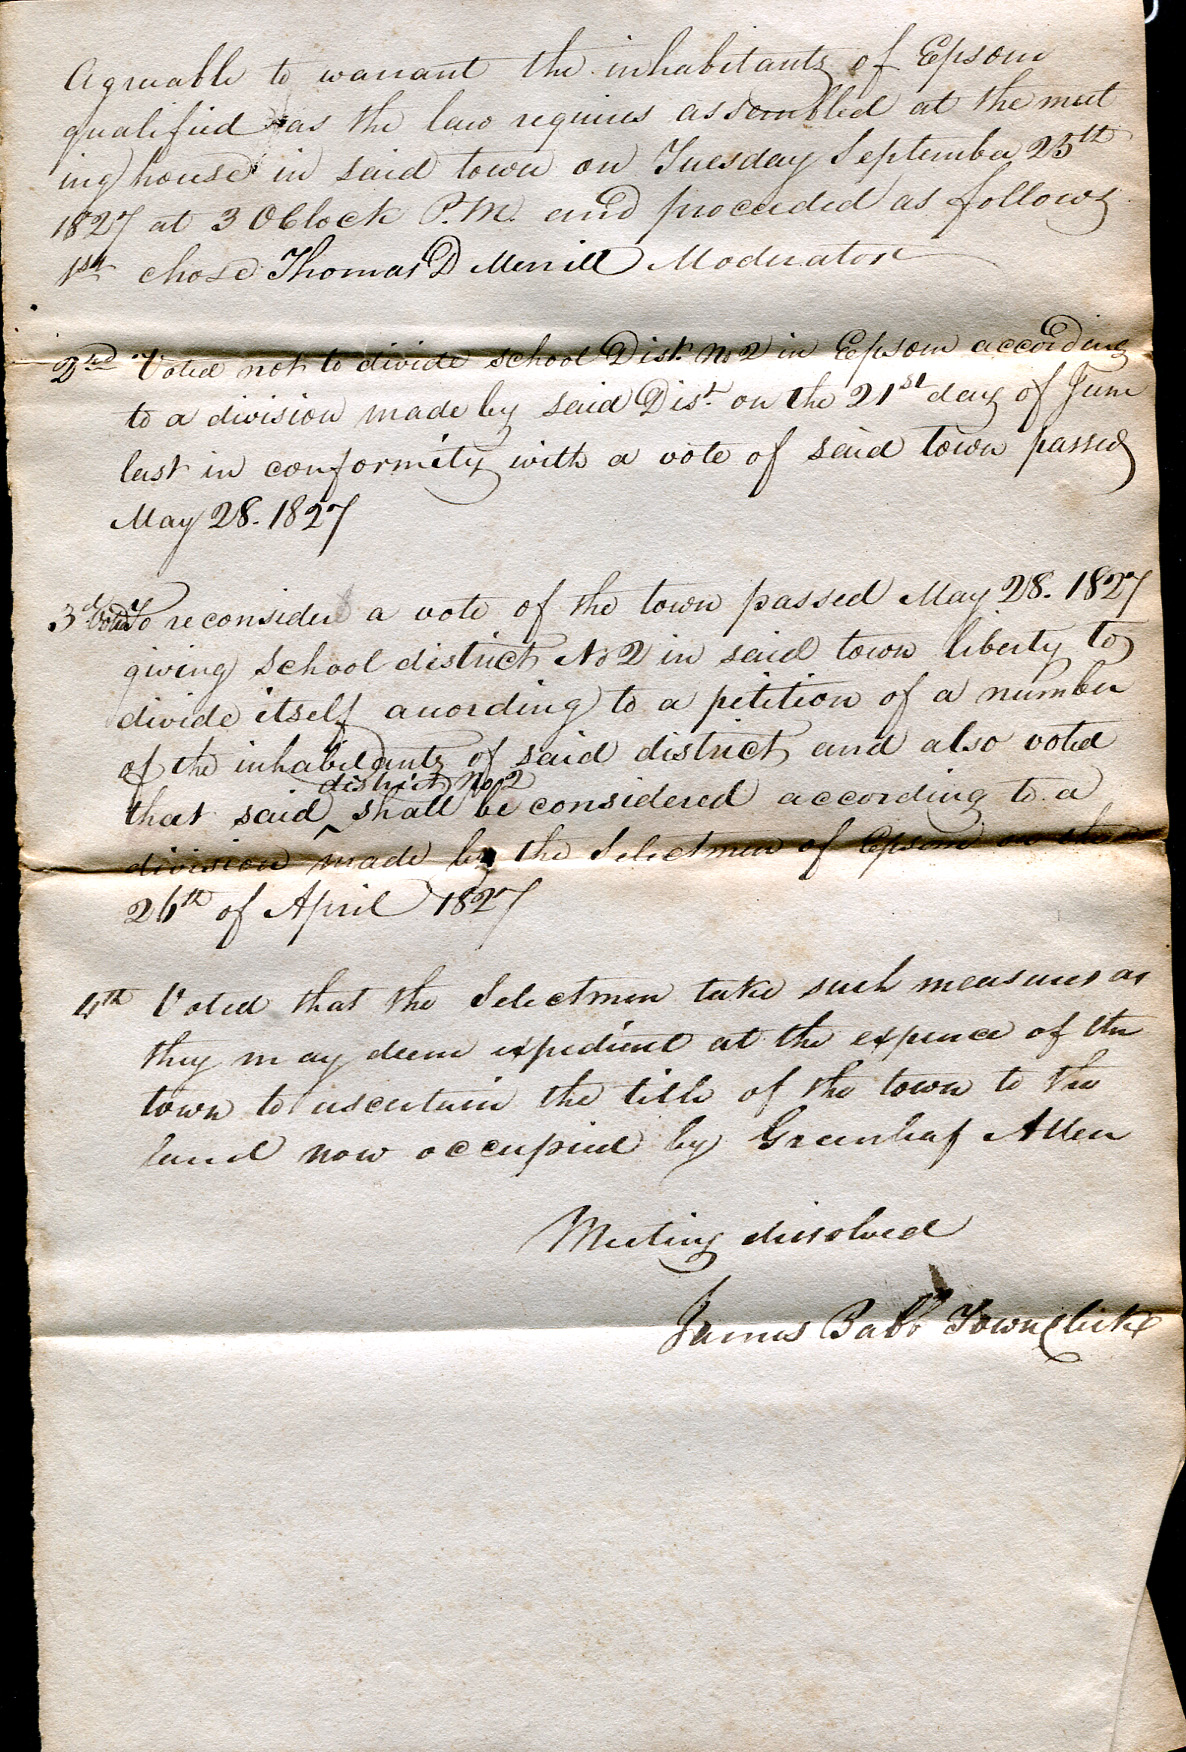 Agreable to warrant the inhabitants of Epsom
qualified as the law requires assembled at the meet
ing house in said town on Tuesday September 25th
1827 at 3 OClock P.M. and proceeded as follows
1st chose Thomas D Merrill Moderator
2nd Voted not to divide school Dist. No 2 in Epsom according
to a division made by said Dist. on the 21st day of June
last in conformity with a vote of said town passed
May 28. 1827
3d Voted To reconsider a vote of the town passed May 28. 1827
giving School district No 2 in said town liberty to
divide itself according to a petition of a number
of the inhabitants of said district and also voted
district No 2
that said ^ shall be considered according to a
division made by the Selectmen of Epsom on the
26th of April 1827
4th Voted that the Selectmen take such measures as
they may deem expedient at the expence of the
town to ascertain the title of the town to the
land now occupied by Greenleaf Allen
Meeting dissolved
James Babb Town Clerk